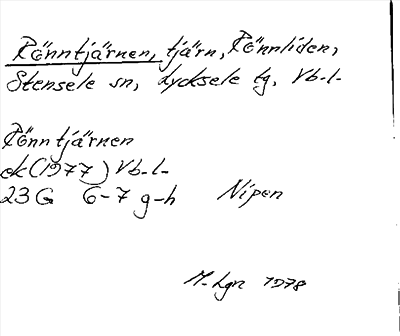 Rönntjärnen, tjärn, Rönnliden,
Stensele sn, Lycksele tg, Vb-l-
Rönntjärnen
ek (1977) Vb-l-
23G 6-7 g-h Nipen
M-Lgn 1978